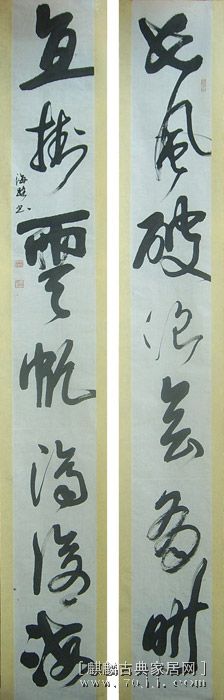 長風破浪會有時
直掛雲帆濟滄海
[麒麟古典家居网]